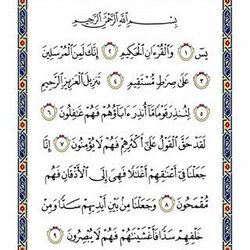 بِسْمِ اللَّهِ الرَّحْمَٰنِ الرَّحِيمِ
يسٓ ١ وَالْقُرْءَانِ الْحَكِيمِ ٢ إِنَّكَ لَمِنَ الْمُرْسَلِينَ
٣ عَلَىٰ صِرَٰطٍ مُّسْتَقِيمٍ ٤ تَنزِيلَ الْعَزِيزِ الرَّحِيمِ
٥ لِتُنذِرَ قَوْمًا مَّآ أُنذِرَ ءَابَآؤُهُمْ فَهُمْ غَٰفِلُونَ ٦
لَقَدْ حَقَّ الْقَوْلُ عَلَىٰٓ أَكْثَرِهِمْ فَهُمْ لَا يُؤْمِنُونَ ٧ إِنَّا
جَعَلْنَا فِىٓ أَعْنَٰقِهِمْ أَغْلَٰلًا فَهِىَ إِلَى الْأَذْقَانِ فَهُم
مُّقْمَحُونَ ٨ وَجَعَلْنَا مِنۢ بَيْنِ أَيْدِيهِمْ سَدًّا وَمِنْ
خَلْفِهِمْ سَدًّا فَأَغْشَيْنَٰهُمْ فَهُمْ لَا يُبْصِرُونَ ٩